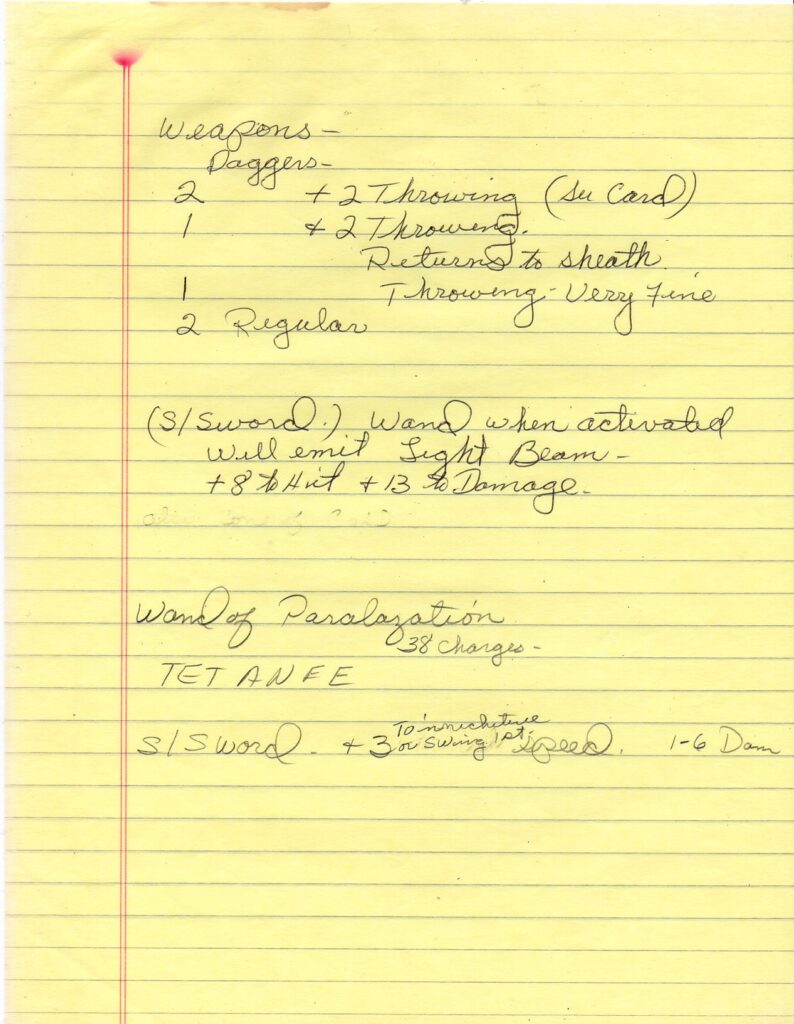 Weapons-
Daggers-
2 +2 Throwing (See Card)
1 +2 Throwing.
Returns to sheath.
1 Throwing - Very Fine
2 Regular
(S/Sword.) Wand when activated
Will emit Light Beam -
+8 to Hit +13 to Damage.
Wand of Paralazation
38 Charges -
TETANEE
S/Sword - +3 To
or Swing 1st. Speed. 1-6 Dam